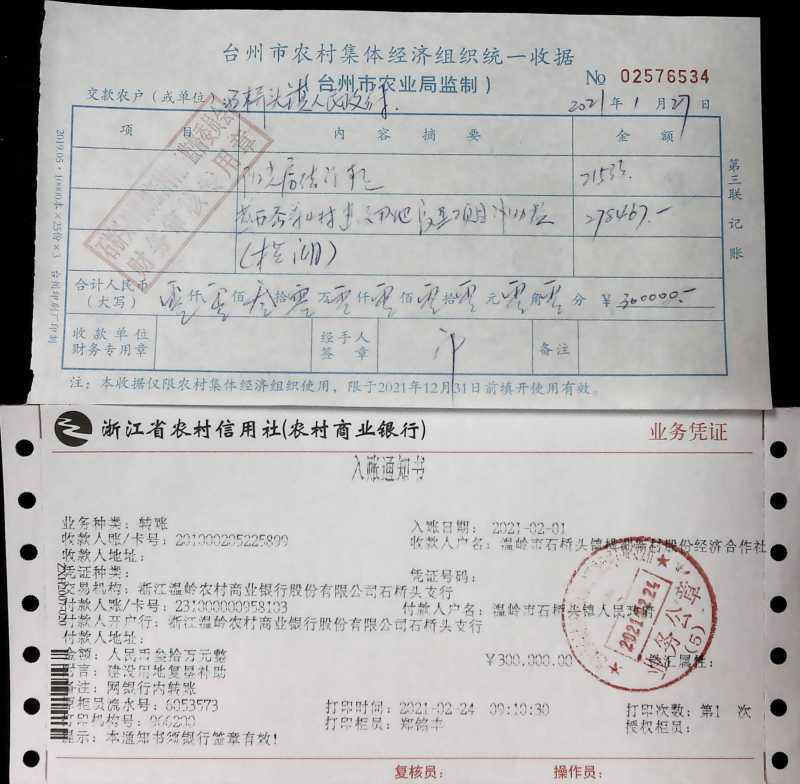 台州市农村集体经济组织统一收据
台州市农业局监制)
No 02576534
交款农户(或单位) 石桥头镇人民政府. 2021年1月27日
项目 内容摘要 金额
21533.
278467.—
合计人民币
(大写) 零仟零佰叁拾零万零仟零佰零拾零元零角零分 ¥300000.—
收款单位
财务专用章
经手人
签章
备注
注:本收据仅限农村集体经济组织使用,限于2021年12月31日前填开使用有效。
第三联 记账
2019.05·10000本×25份×3 台州
财务 专用章
浙江省农村信用社(农村商业银行) 业务凭证
入账通知书
业务种类:转账 入账日期: 2021-02-01
收款人账/卡号:201000205225899 收款人户名:温岭市石桥头镇 村股份经济合作社
收款人地址:
凭证种类: 凭证号码:
交易机构:浙江温岭农村商业银行股份有限公司石桥头支行
付款人账/卡号:231000000958103 付款人户名:温岭市石桥头镇人民政府
付款人开户行:浙江温岭农村商业银行股份有限公司石桥头支行
付款人地址:
金额:人民币叁拾万元整 ¥300,000.00 钞汇属性:
附言:建设用地复垦补助
备注:网银行内转账
原柜员流水号:6053573 打印时间:2021-02-24 09:10:30 打印次数:第1 次
打印机构号:966200 打印柜员:郑铭丰 授权柜员:
提示:本通知书须银行签章有效!
2021.02.24
业务公章
(5)
复核员: 操作员: